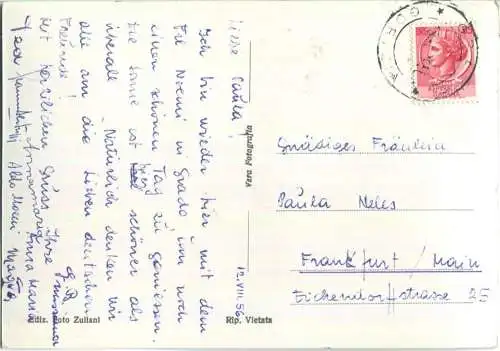 Liebe Paula!
Ich bin wieder hier mit dem
Frl Noemi in Grado um noch
einen schönen Tag zu geniesen.
Die Sonne ist hier schöner als
überall. Natürlich denken wir
alle an die lieben deutschen
Freunde!
Mit herzlichen Grüss Ihre
Annamaria
Anna Maria
Aldo
12.VIII.56.
Vera Fotografia
Ediz. Foto Zuliani
Rip. Vietata
Gnädiges Fräulein
Paula Neles
Frankfurt / Main
Eichendorffstrasse 25